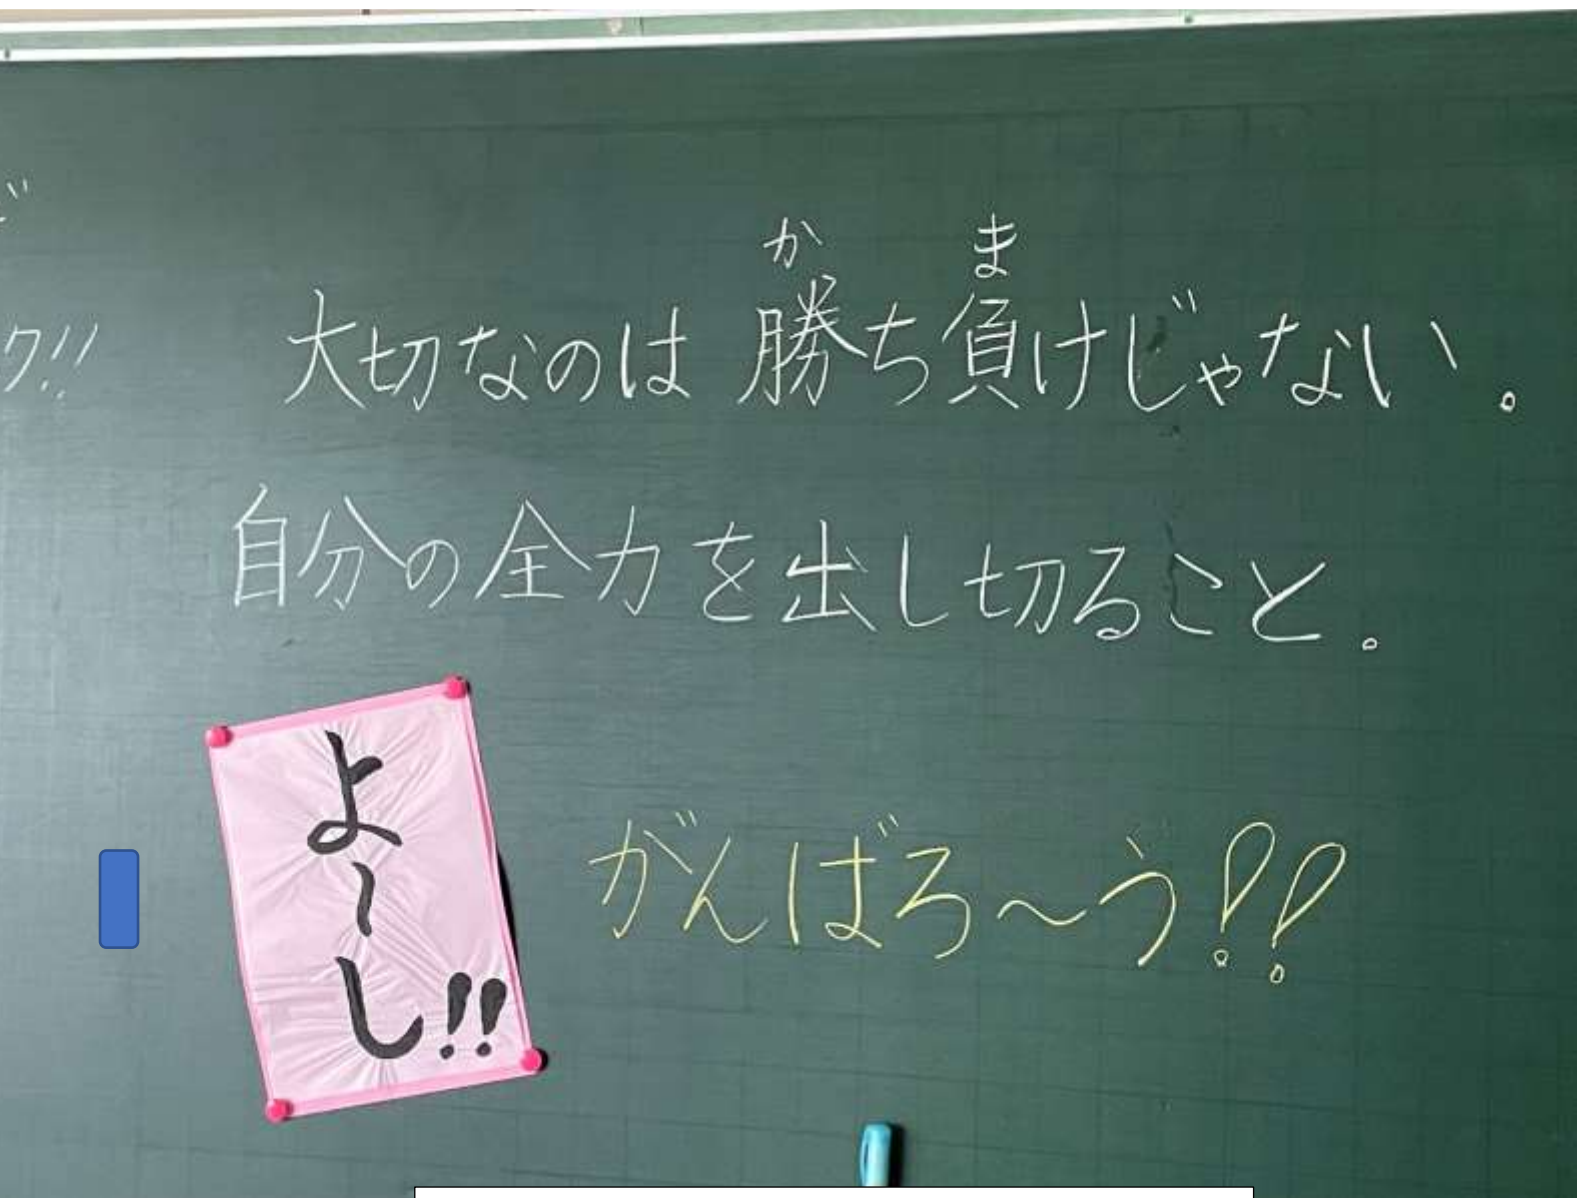 か ま
大切なのは 勝ち負けじゃない。
自分の全力を出し切ること。
よ～し!!
がんばろ～う!!